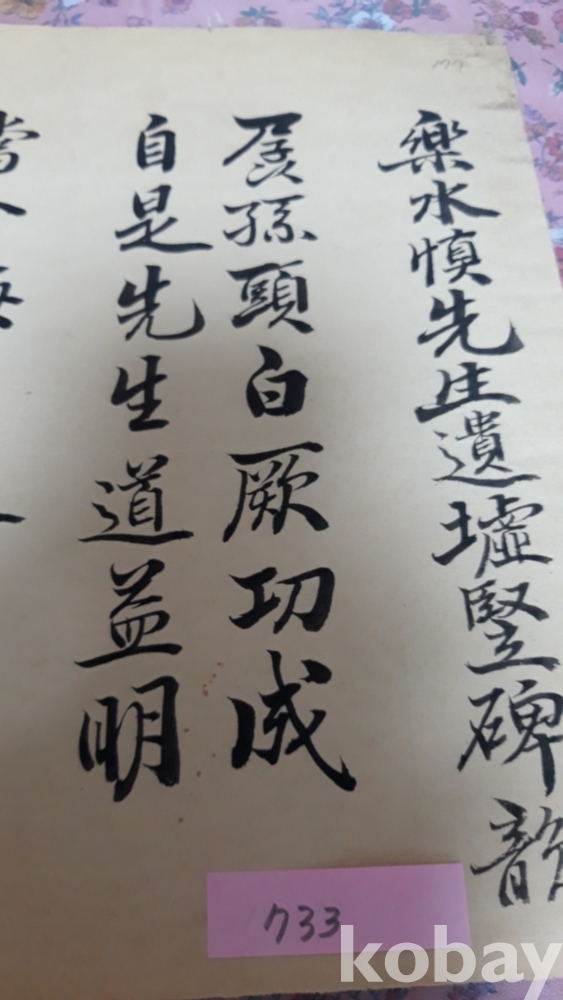 樂水愼先生遺墟竪碑韻
孱孫頭白厥功成
自是先生道益明
733
kobay